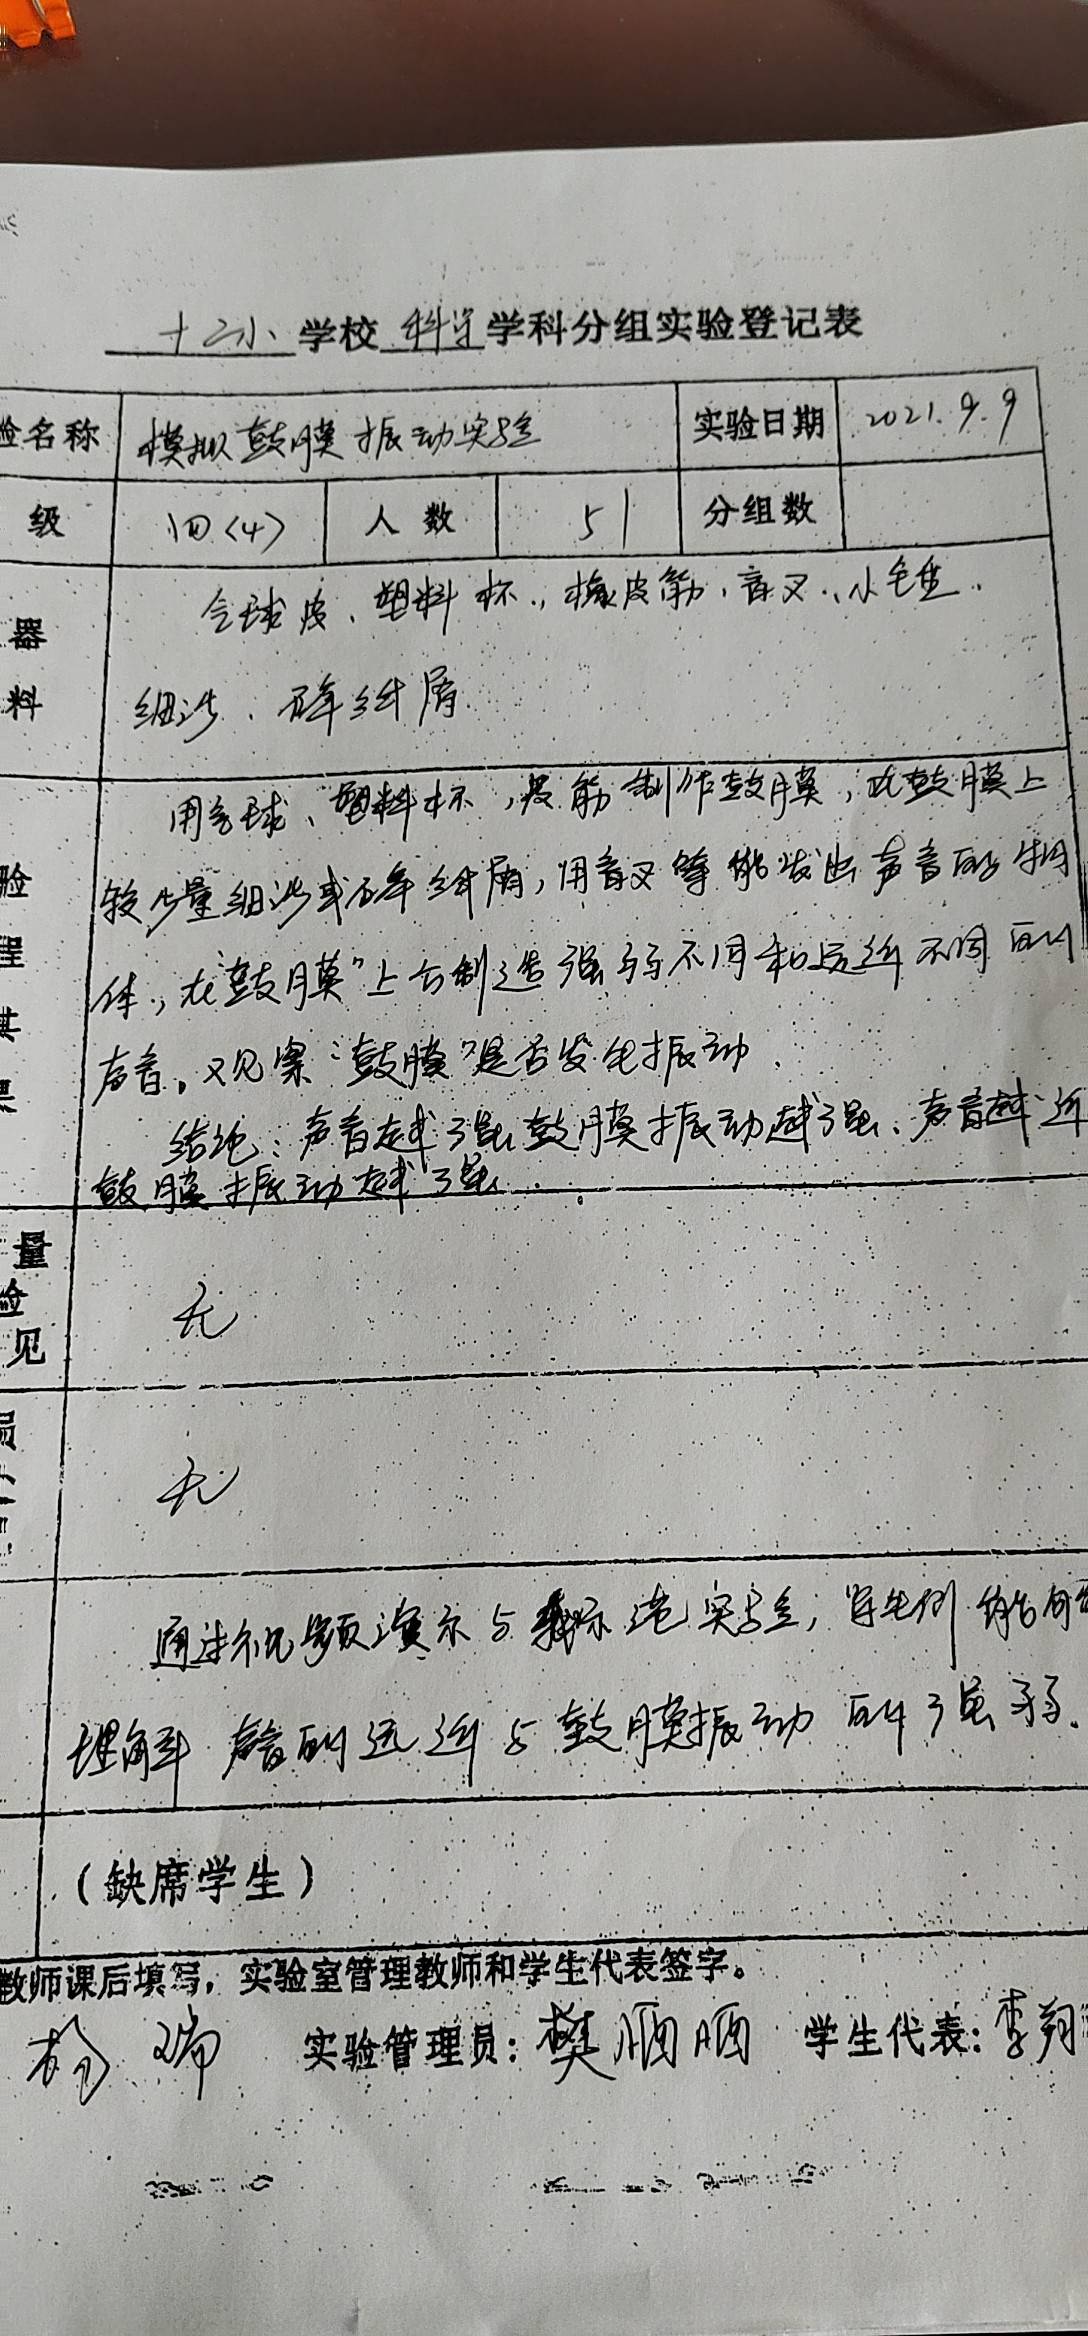 十二小 学校 科学 学科分组实验登记表
验名称 模拟鼓膜振动实验 实验日期 2021.9.9
级 四(4) 人数 51 分组数
器 气球皮、塑料杯、橡皮筋、音叉、小毛
料 细沙、碎纸屑
用气球、塑料杯,皮筋制作鼓膜,在鼓膜上
验 较少量细沙或碎纸屑,用音叉等能发出声音的物
程 体,在“鼓膜”上方制造强弱不同和远近不同的
声音。观察“鼓膜”是否发生振动.
结论:声音越强鼓膜振动越强、声音越近
鼓膜振动越强
量
验
见 无
员
无
通过视频演示与示范实验,学生们能
理解声音的远近与鼓膜振动的强弱.
(缺席学生)
教师课后填写,实验室管理教师和学生代表签字。
杨瑞 实验管理员:樊丽丽 学生代表:李翔